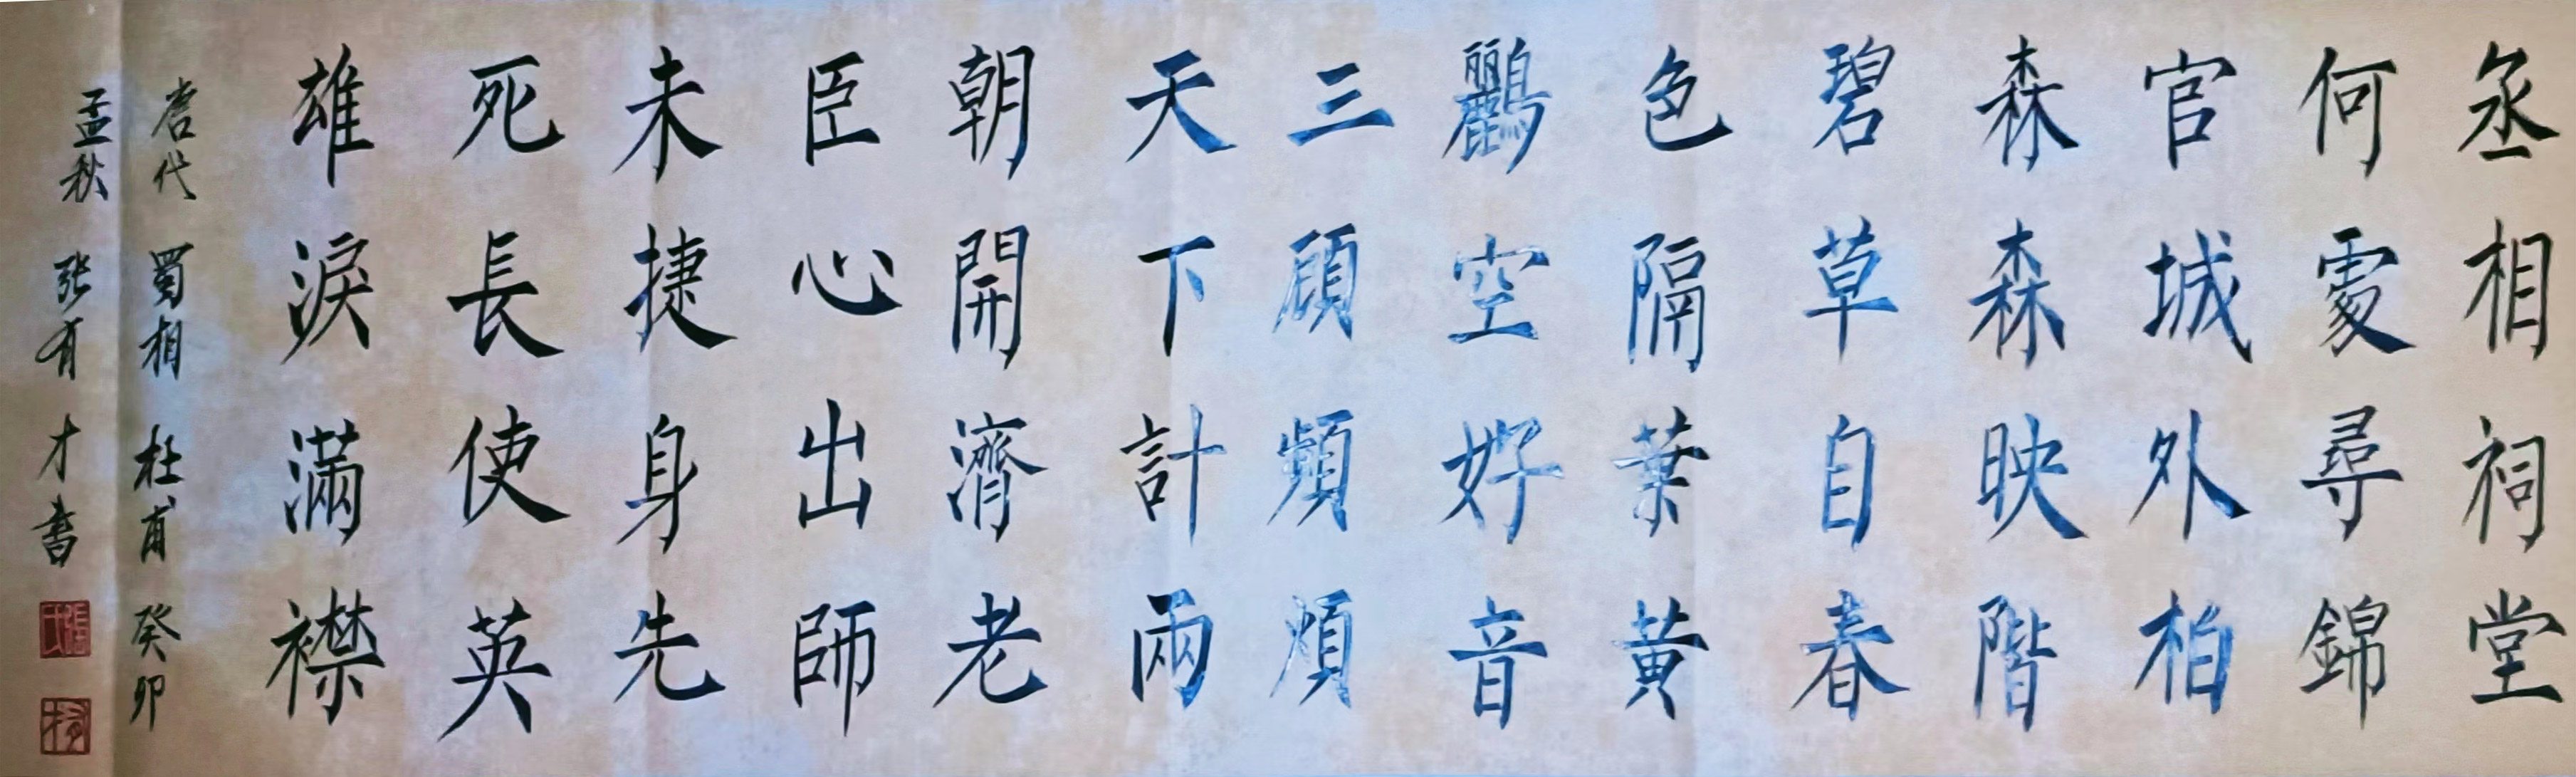 丞相祠堂
何處尋錦
官城外柏
森森映階
碧草自春
色隔葉黃
鸝空好音
三顧頻煩
天下計兩
朝開濟老
臣心出師
未捷身先
死長使英
雄淚滿襟
唐代 蜀相 杜甫 癸卯
孟秋 张有才書